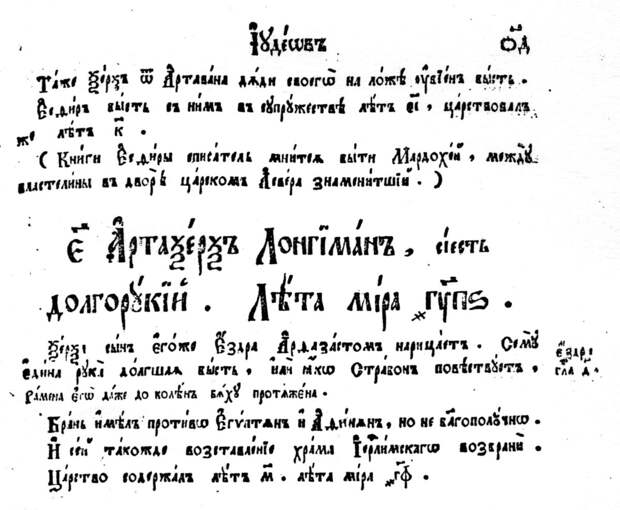 Іꙋде́ѡвъ ѻ҃д
Та́же Ѯе́рѯъ ѿ Артава́на дѧ́ди своегѡ̀ на ло́жѣ ᲂу҆бїе́нъ бы́сть .
Есѳи́рь бы́сть съ ни́мъ въ сꙋпрꙋжествѣ лѣ́тъ , ца́рствовалъ
же лѣ́тъ к҃ .
( Кни́ги Есѳи́ры списа́тель мни́тсѧ бы́ти Мардохе́й , междꙋ̀
властели́ны въ дворѣ̀ ца́рскомъ Асвера знамени́тшїй . )
є҃ Артаѯе́рѯъ Лонгїма́нъ , сїе́сть
долгорꙋ́кїй . Лѣ́та мі́ра ҂гꙋ҃пѕ .
Ѯе́рѯа сы́нъ є҆го́же Е҆́здра Арѳаза́стомъ нарица́етъ . Семꙋ̀
е҆ди́на рꙋка̀ до́лгшаѧ бы́сть , и҆лѝ ꙗ҆́кѡ Страбо́нъ повѣ́ствꙋетъ .
Е҆́здра
гла̀ д҃ .
Ра́мена є҆гѡ̀ да́же до колѣ́нъ бѧ́хꙋ протѧже́на .
Бра́нь и҆мѣ́лъ проти́вѡ Егѵ́птѧнъ и҆ Аѳи́нѧнъ , но не благополꙋ́чнѡ .
И҆ се́й та́кожде возставле́нїе хра́ма Іерⷭ҇ли́мскагѡ возбранѝ .
Ца́рство содержа́лъ лѣ́тъ м҃ . лѣ́та мі́ра ҂гф҃ .